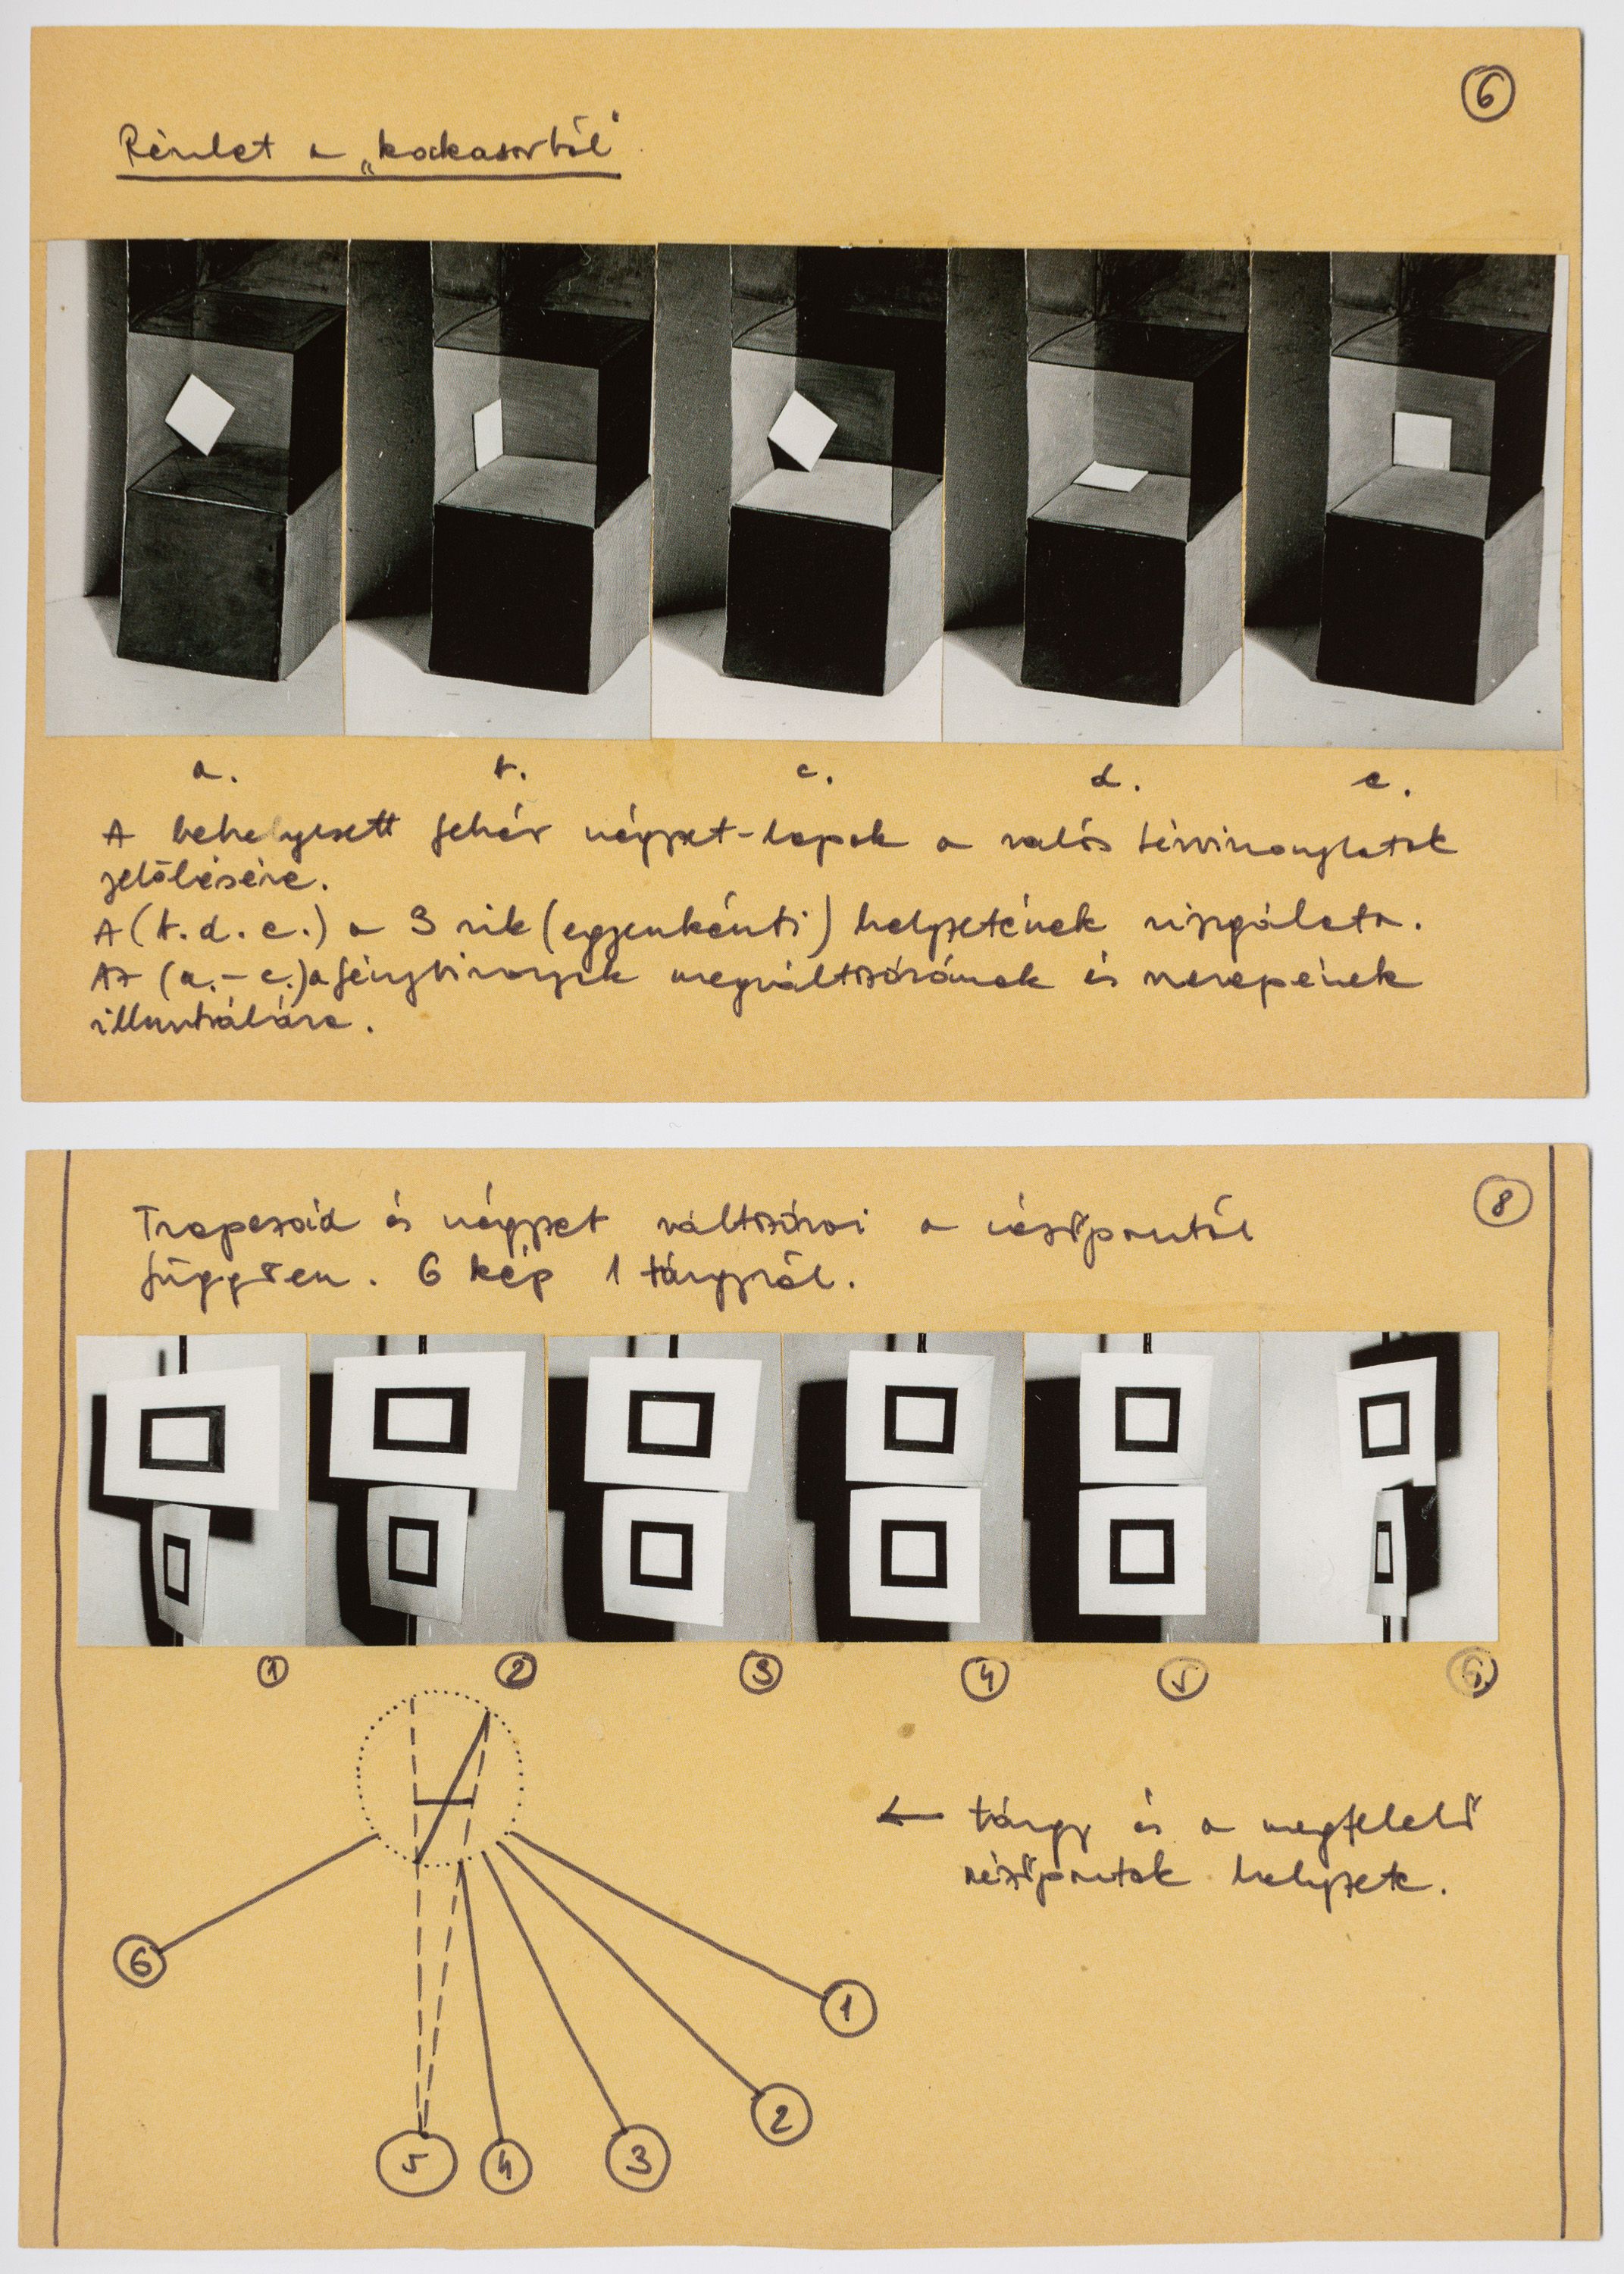 6
Részlet a „kockasorból"
a. b. c. d. e.
A behelyezett fehér négyzet-lapok a valós térviszonylatok
jelölésére.
A (b. d. e.) a 3 sík (egyenkénti) helyzetének vizsgálata.
Az (a. – c.) a fényviszonyok megváltozásának és szerepének
illusztrálására.
8
Trapezoid és négyzet változásai a nézőponttól
függően. 6 kép 1 tárgyról.
1 2 3 4 5 6
← tárgy és a megfelelő
nézőpontok helyzete.
6
1
2
5 4 3